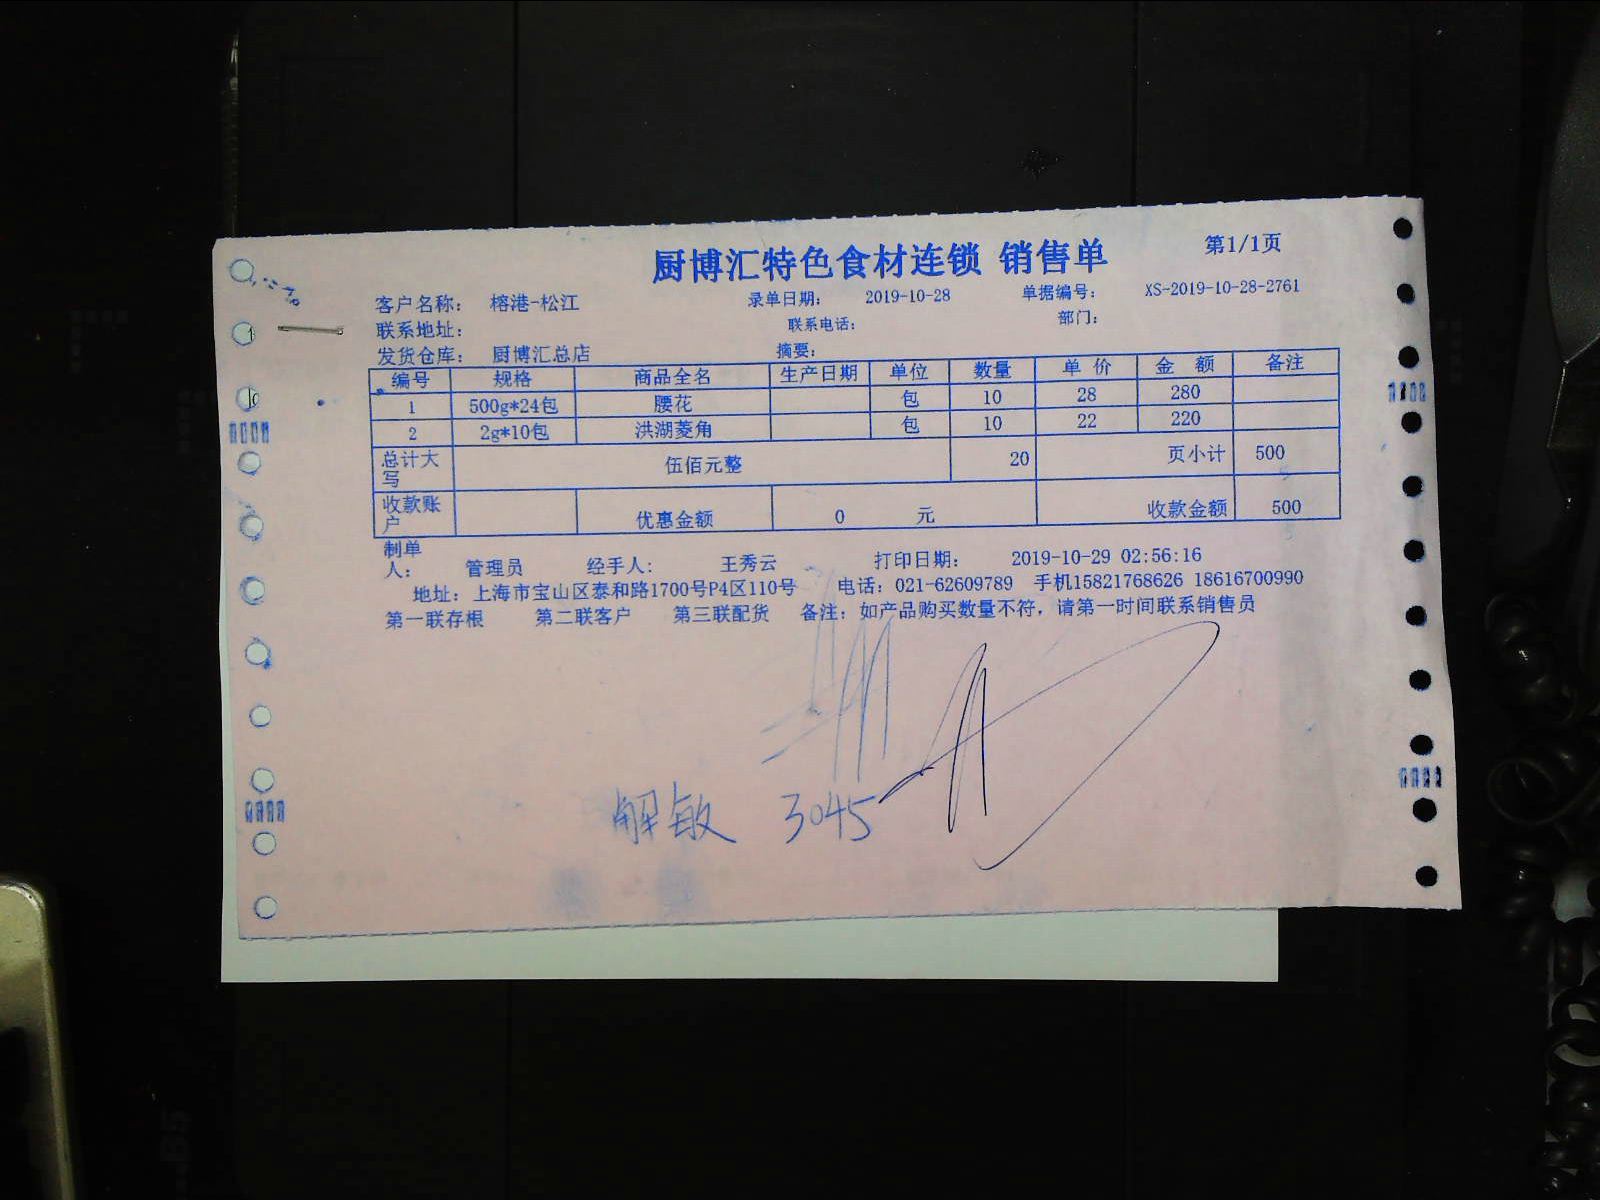 厨博汇特色食材连锁 销售单 第1/1页
客户名称: 榕港-松江 录单日期: 2019-10-28 单据编号: XS-2019-10-28-2761
联系地址: 联系电话: 部门:
发货仓库: 厨博汇总店 摘要:
编号 规格 商品全名 生产日期 单位 数量 单价 金额 备注
1 500g*24包 腰花 包 10 28 280
2 2g*10包 洪湖菱角 包 10 22 220
总计大写 伍佰元整 20 页小计 500
收款账户 优惠金额 0 元 收款金额 500
制单人: 管理员 经手人: 王秀云 打印日期: 2019-10-29 02:56:16
地址: 上海市宝山区泰和路1700号P4区110号 电话: 021-62609789 手机15821768626 18616700990
第一联存根 第二联客户 第三联配货 备注: 如产品购买数量不符,请第一时间联系销售员
解敏 3045